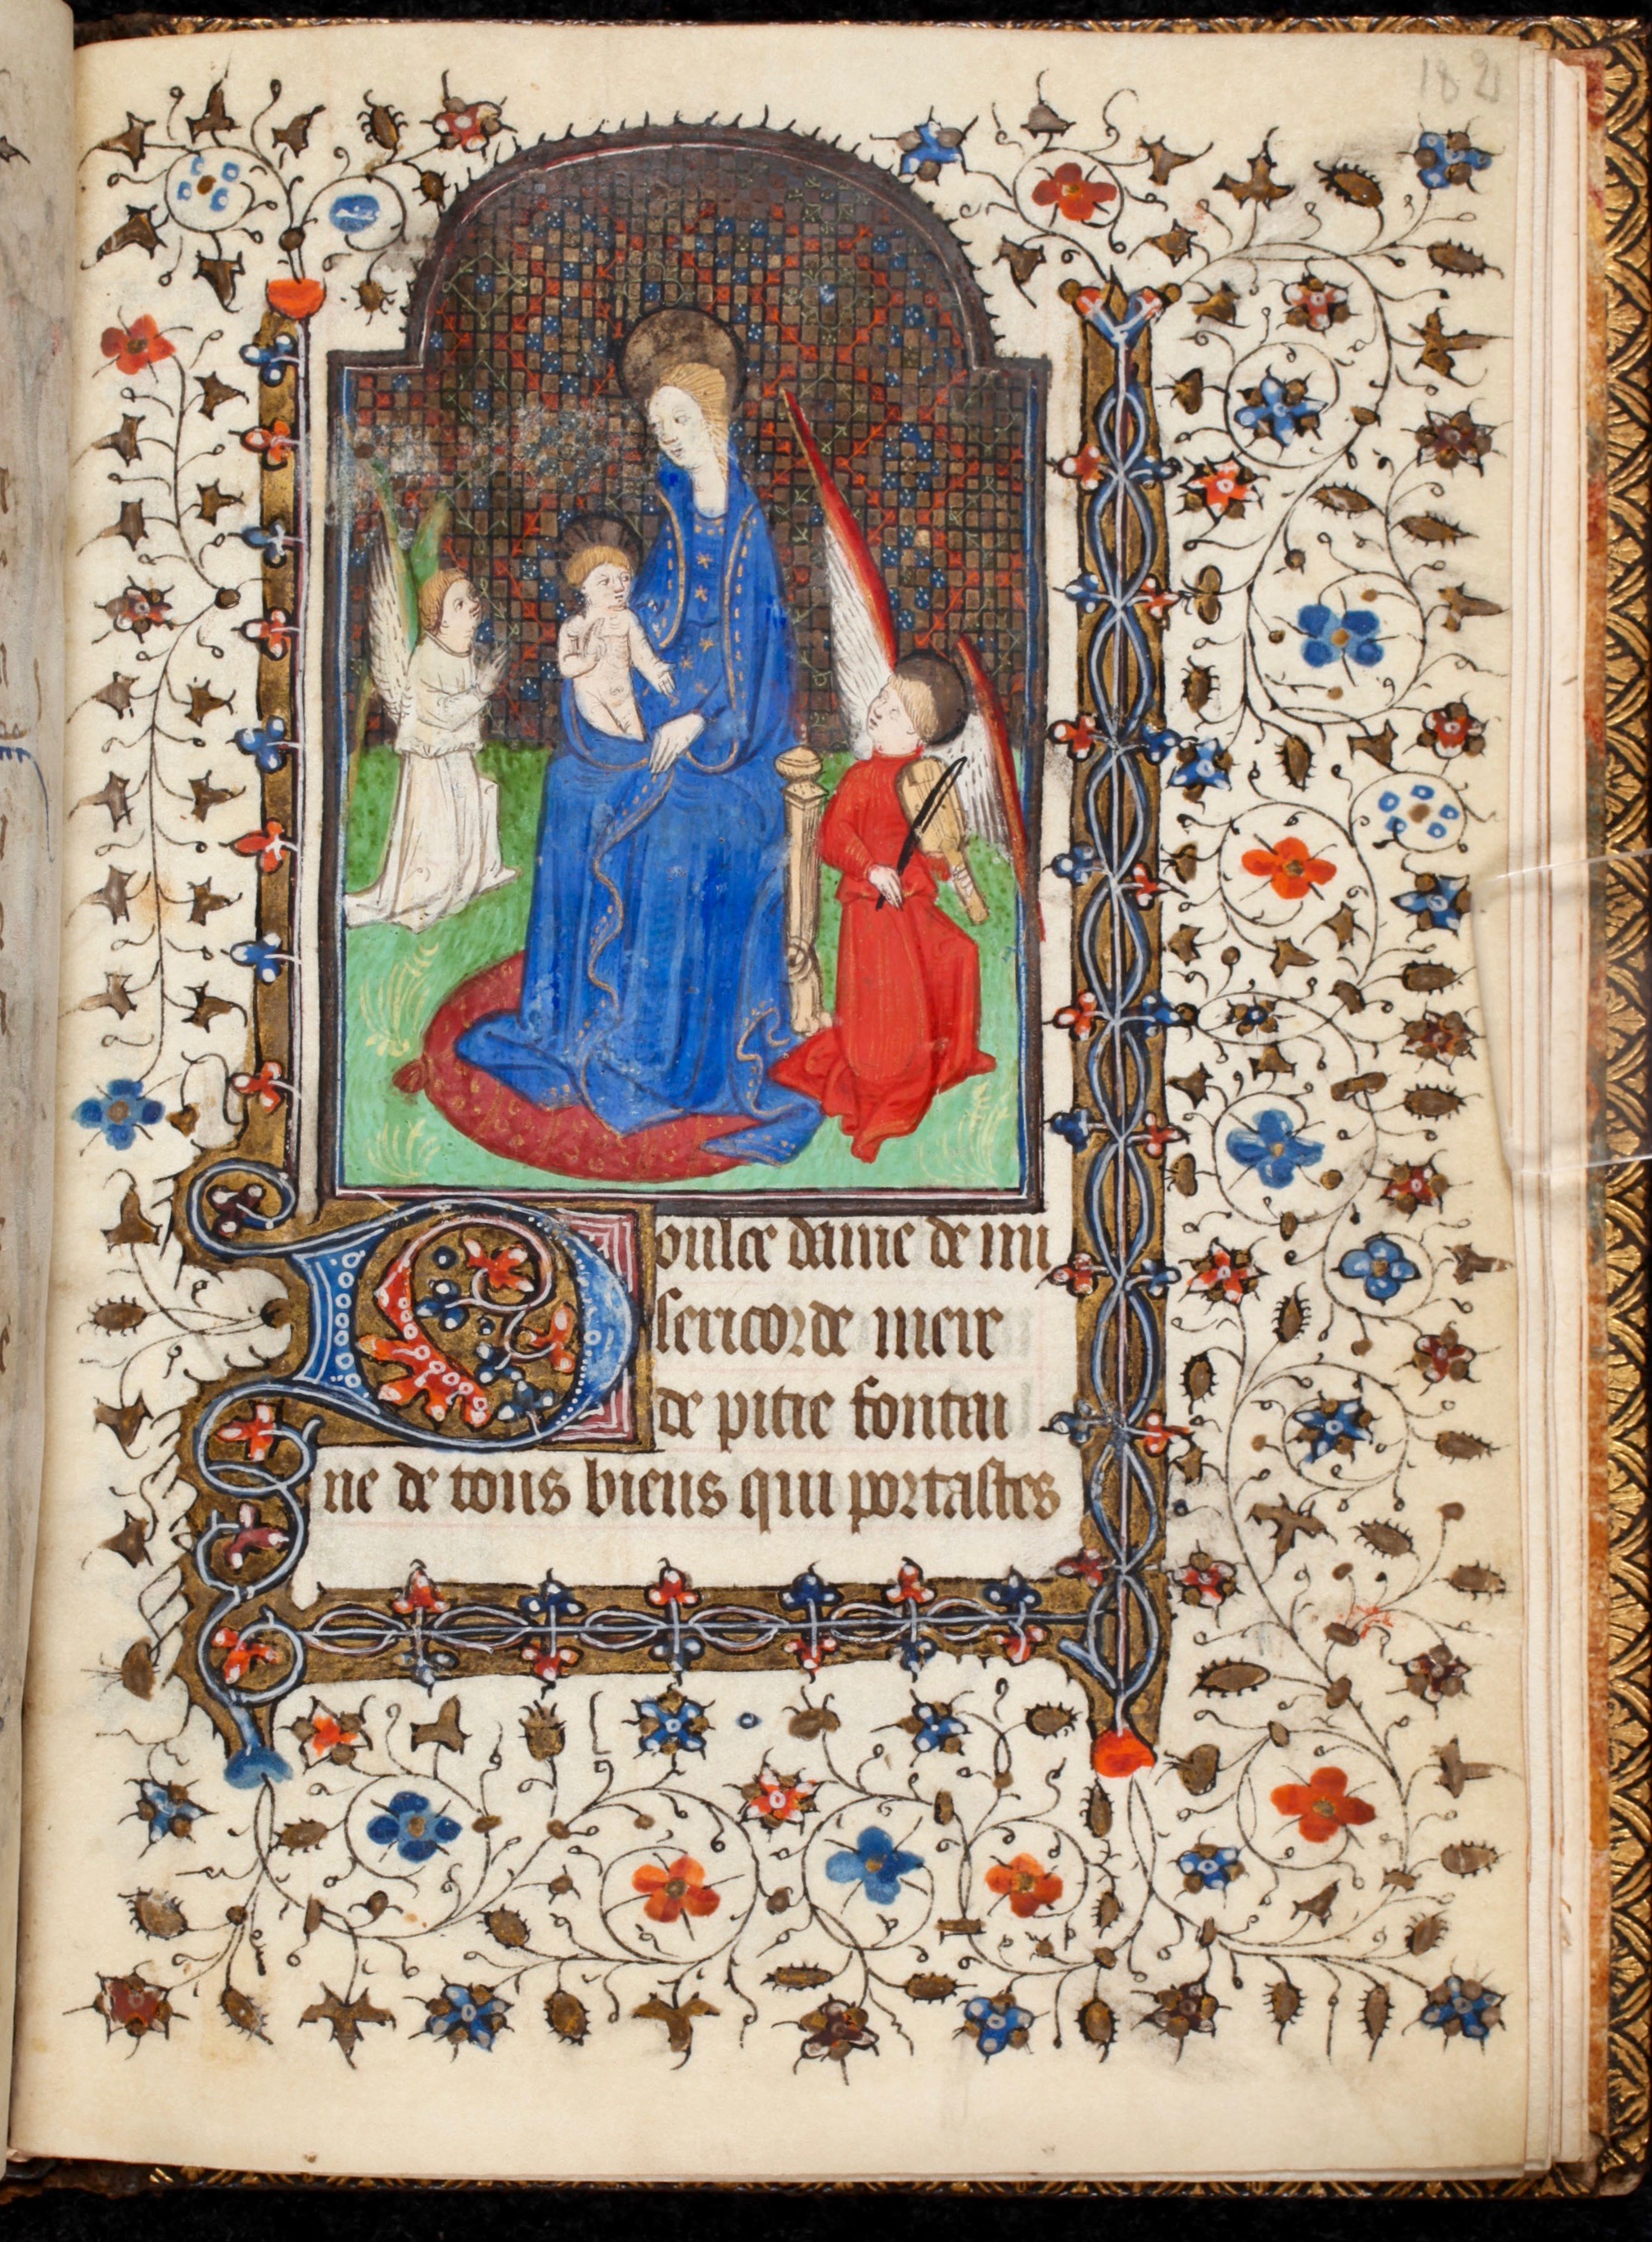 182
Doulce dame de mi
sericorde mere
de pitie fontai
ne de tous biens qui portastes